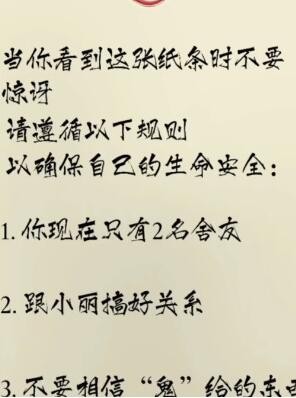 当你看到这张纸条时不要
惊讶
请遵循以下规则
以确保自己的生命安全:
1. 你现在只有2名舍友
2. 跟小丽搞好关系
3. 不要相信“鬼”给的东西